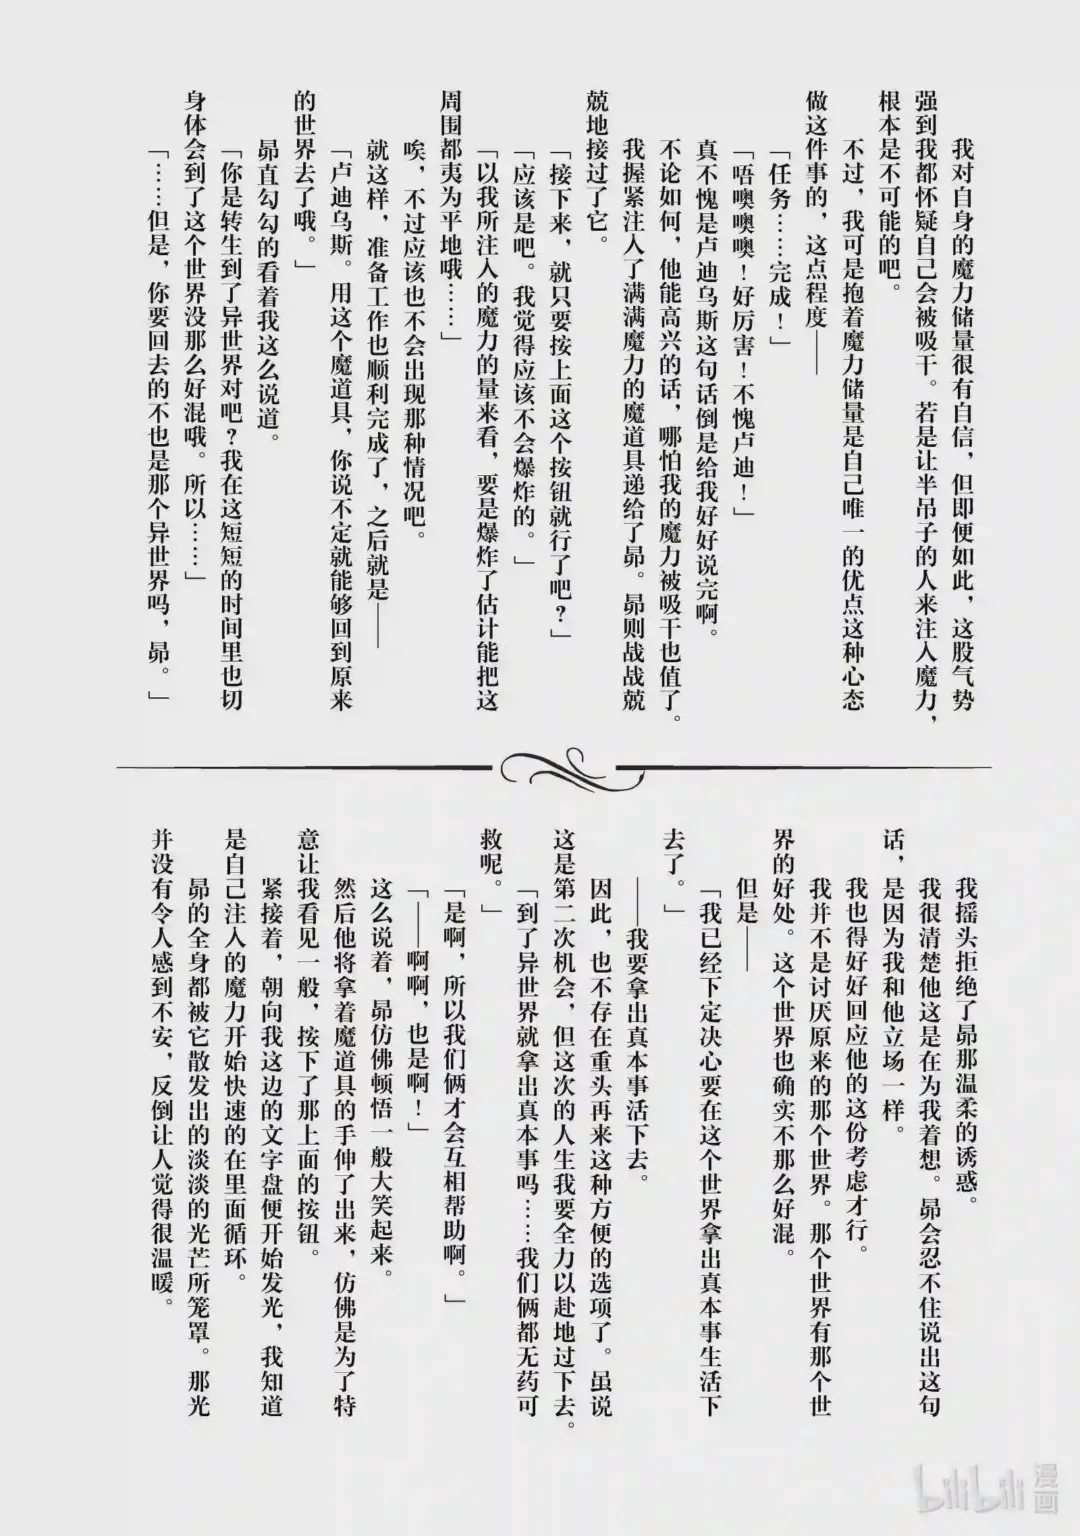 我对自身的魔力储量很有自信，但即便如此，这股气势
强到我都怀疑自己会被吸干。若是让半吊子的人来注入魔力，
根本是不可能的吧。
不过，我可是抱着魔力储量是自己唯一的优点这种心态
做这件事的，这点程度——
「任务……完成！」
「唔噢噢噢！好厉害！不愧卢迪！」
真不愧是卢迪乌斯这句话倒是给我好好说完啊。
不论如何，他能高兴的话，哪怕我的魔力被吸干也值了。
我握紧注入了满满魔力的魔道具递给了昴。昴则战战兢
兢地接过了它。
「接下来，就只要按上面这个按钮就行了吧？」
「应该是吧。我觉得应该不会爆炸的。」
「以我所注入的魔力的量来看，要是爆炸了估计能把这
周围都夷为平地哦……」
唉，不过应该也不会出现那种情况吧。
就这样，准备工作也顺利完成了，之后就是——
「卢迪乌斯。用这个魔道具，你说不定就能够回到原来
的世界去了哦。」
昴直勾勾的看着我这么说道。
「你是转生到了异世界对吧？我在这短短的时间里也切
身体会到了这个世界没那么好混哦。所以……」
「……但是，你要回去的不也是那个异世界吗，昴。」
我摇头拒绝了昴那温柔的诱惑。
我很清楚他这是在为我着想。昴会忍不住说出这句
话，是因为我和他立场一样。
我也得好好回应他的这份考虑才行。
我并不是讨厌原来的那个世界。那个世界有那个世
界的好处。这个世界也确实不那么好混。
但是——
「我已经下定决心要在这个世界拿出真本事生活下
去了。」
——我要拿出真本事活下去。
因此，也不存在重头再来这种方便的选项了。虽说
这是第二次机会，但这次的人生我要全力以赴地过下去。
「到了异世界就拿出真本事吗……我们俩都无药可
救呢。」
「是啊，所以我们俩才会互相帮助啊。」
「——啊啊，也是啊！」
这么说着，昴仿佛顿悟一般大笑起来。
然后他将拿着魔道具的手伸了出来，仿佛是为了特
意让我看见一般，按下了那上面的按钮。
紧接着，朝向我这边的文字盘便开始发光，我知道
是自己注入的魔力开始快速的在里面循环。
昴的全身都被它散发出的淡淡的光芒所笼罩。那光
并没有令人感到不安，反倒让人觉得很温暖。
bilibili 漫画